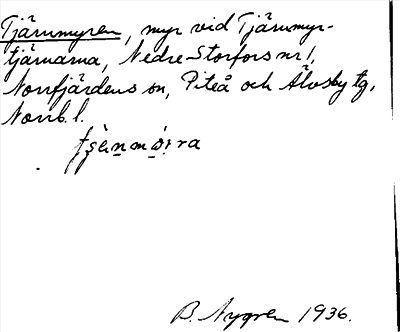 Tjärnmyren, myr vid Tjärnmyr-
tjärnarna, Nedre-Storfors nr 1,
Norrfjärdens sn, Piteå och Älvsby tg,
Norrb. l.
B. Nygren 1936.